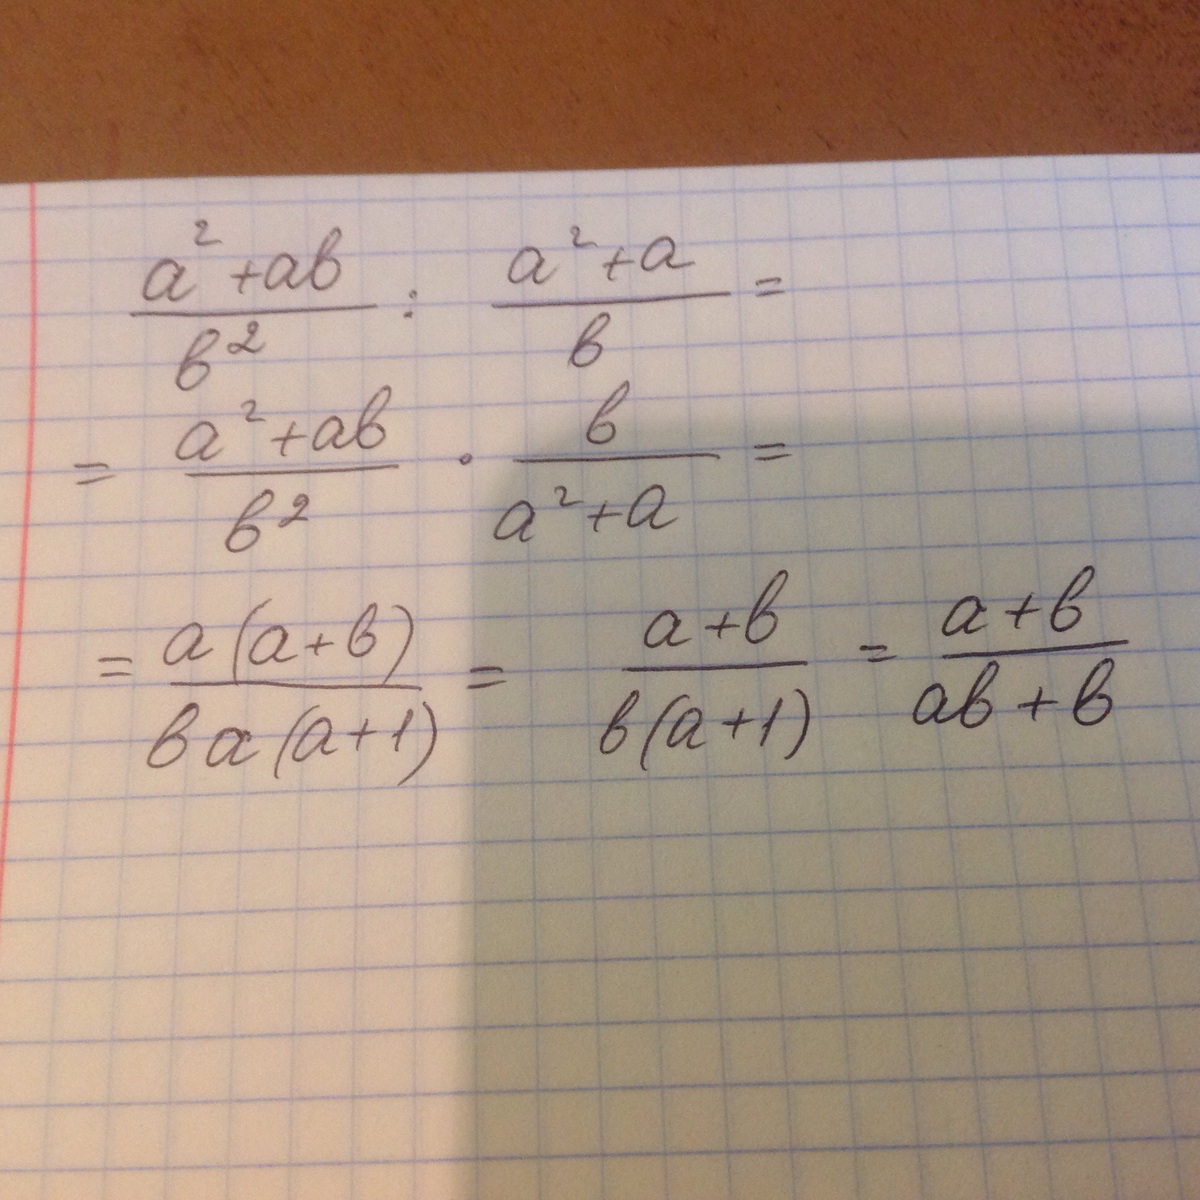 (a²+ab)/b² : (a²+a)/b =
= (a²+ab)/b² · b/(a²+a) =
= a(a+b)/ba(a+1) = (a+b)/b(a+1) = (a+b)/(ab+b)